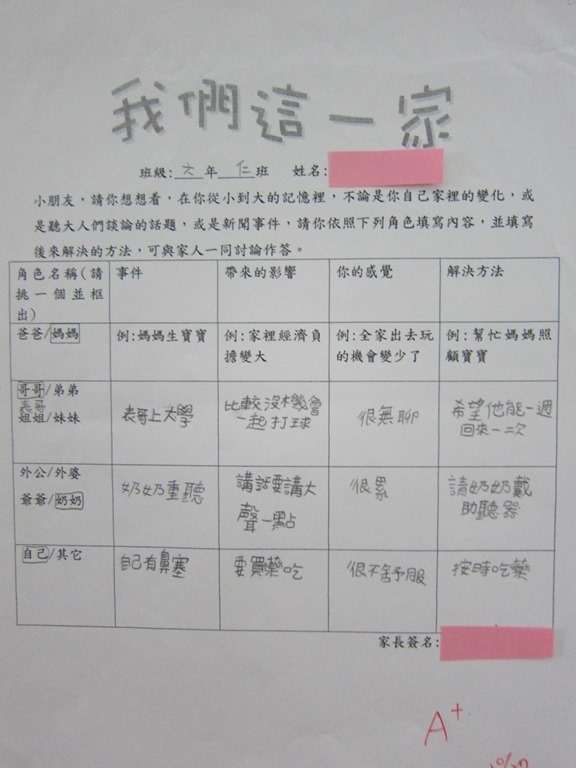 我們這一家
班級:六年仁班 姓名:
小朋友，請你想想看，在你從小到大的記憶裡，不論是你自己家裡的變化，或
是聽大人們談論的話題，或是新聞事件，請你依照下列角色填寫內容，並填寫
後來解決的方法，可與家人一同討論作答。
角色名稱(請
挑一個並框
出)
事件
帶來的影響
你的感覺
解決方法
爸爸/媽媽
例:媽媽生寶寶
例:家裡經濟負
擔變大
例:全家出去玩
的機會變少了
例:幫忙媽媽照
顧寶寶
哥哥/弟弟
表哥
姐姐/妹妹
表哥上大學
比較沒機會
一起打球
很無聊
希望他能一週
回來一二次
外公/外婆
爺爺/奶奶
奶奶重聽
講話要講大
聲一點
很累
請奶奶戴
助聽器
自己/其它
自己有鼻塞
要買藥吃
很不舒服
按時吃藥
家長簽名:
A+